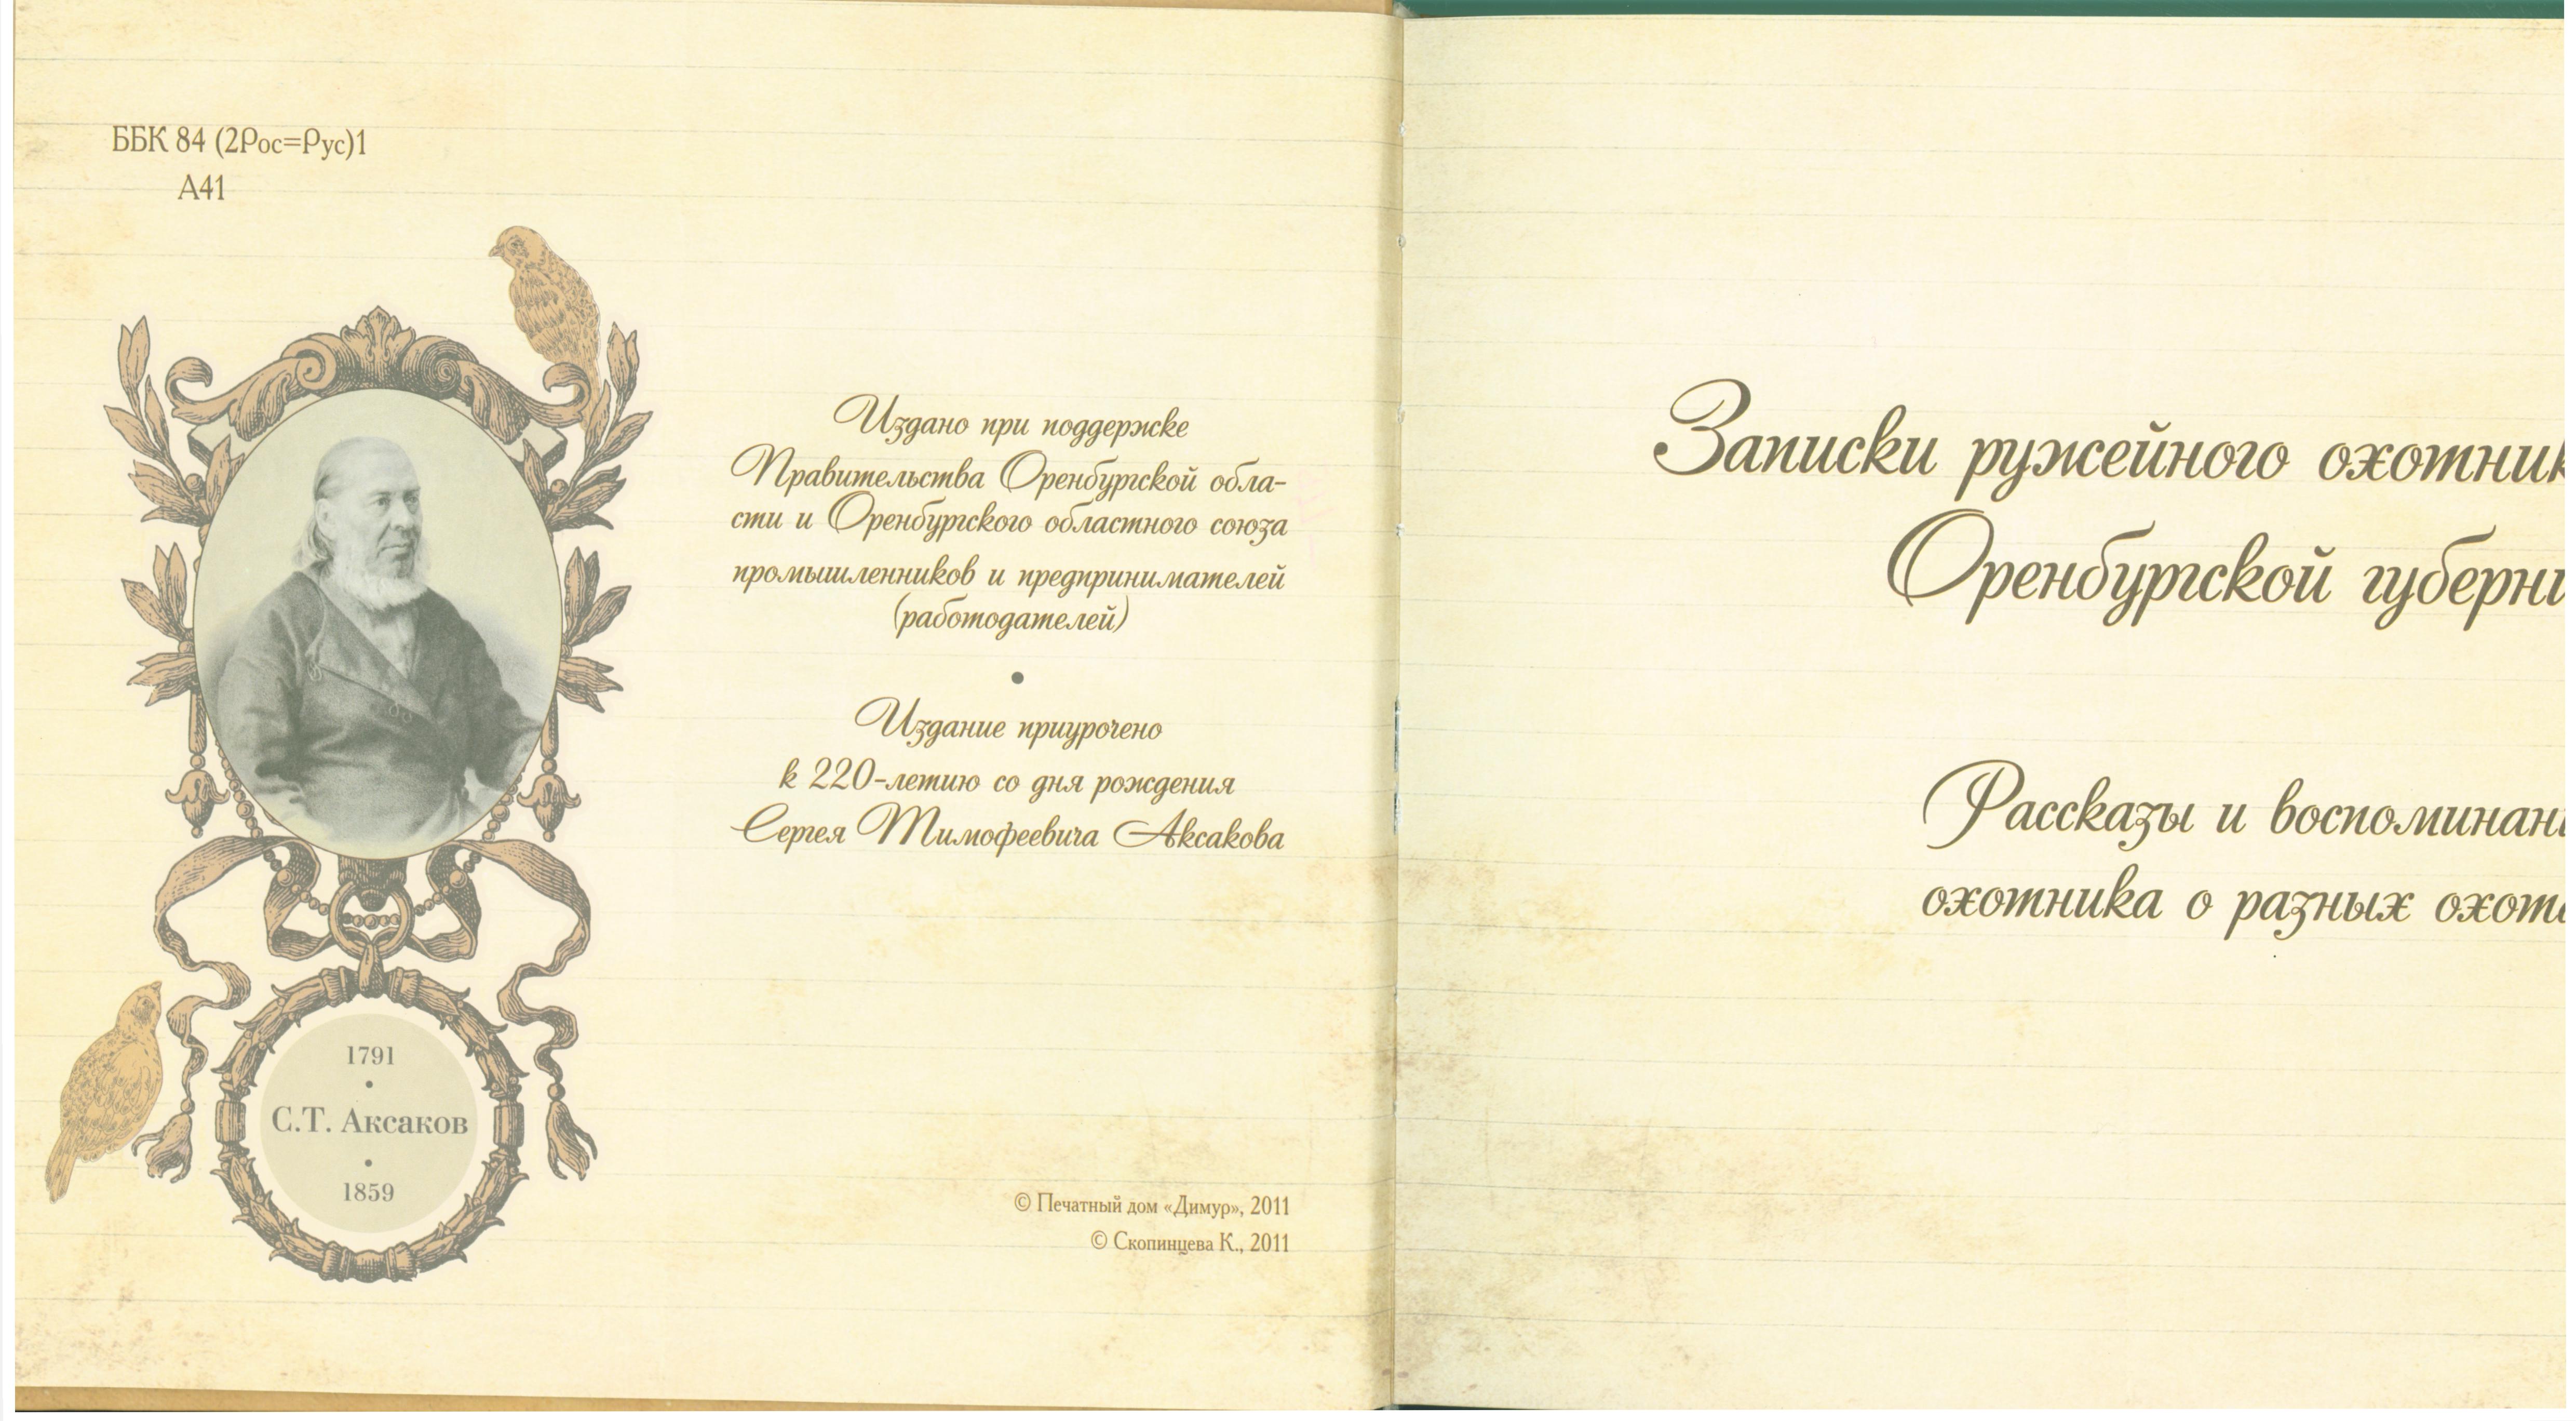 ББК 84 (2Рос=Рус)1
А41
Издано при поддержке
Правительства Оренбургской обла-
сти и Оренбургского областного союза
промышленников и предпринимателей
(работодателей)
•
Издание приурочено
к 220-летию со дня рождения
Сергея Тимофеевича Аксакова
1791
•
С.Т. Аксаков
•
1859
© Печатный дом «Димур», 2011
© Скопинцева К., 2011
Записки ружейного охотник
Оренбургской губерни
Рассказы и воспоминани
охотника о разных охота